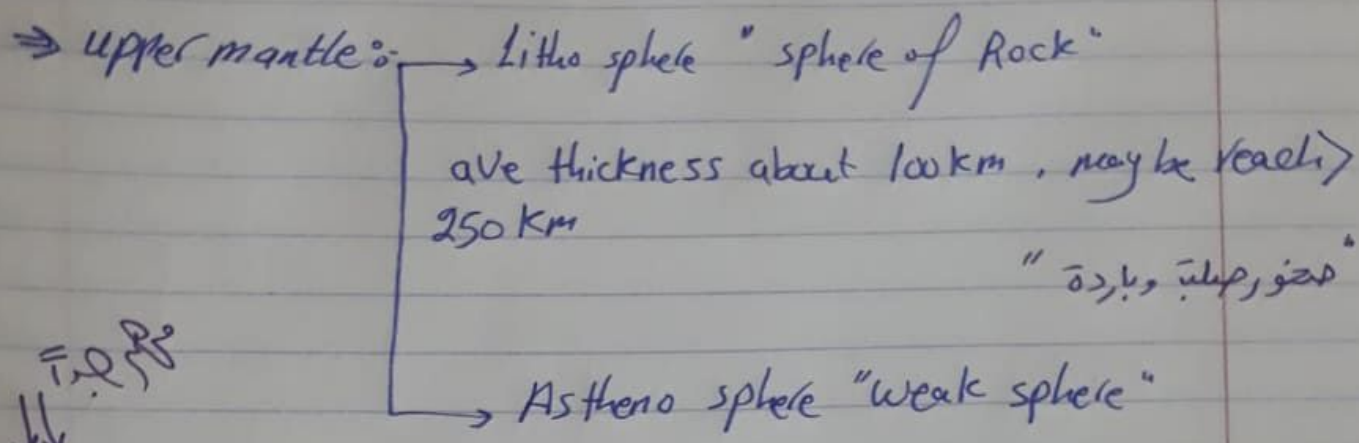 ⇒ upper mantle :- → Litho sphere " sphere of Rock "
ave thickness about 100 km , may be reach >
250 km
" صخور صلبة وباردة "
مهم جداً
→ Astheno sphere "weak sphere"